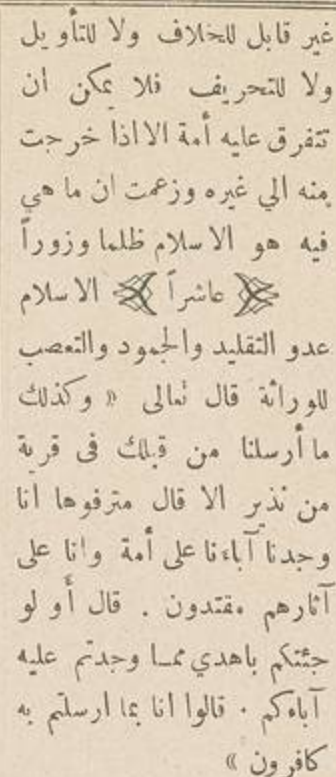 غير قابل للخلاف ولا للتأويل
ولا للتحريف فلا يمكن ان
تتفرق عليه أمة الا اذا خرجت
منه الي غيره وزعمت ان ما هي
فيه هو الاسلام ظلما وزوراً
عاشراً الاسلام
عدو التقليد والجمود والتعصب
للوراثة قال تعالى « وكذلك
ما أرسلنا من قبلك فى قرية
من نذير الا قال مترفوها انا
وجدنا آباءنا على أمة وانا على
آثارهم مقتدون . قال أو لو
جئتكم باهدي مما وجدتم عليه
آباءكم . قالوا انا بما ارسلتم به
كافرون »